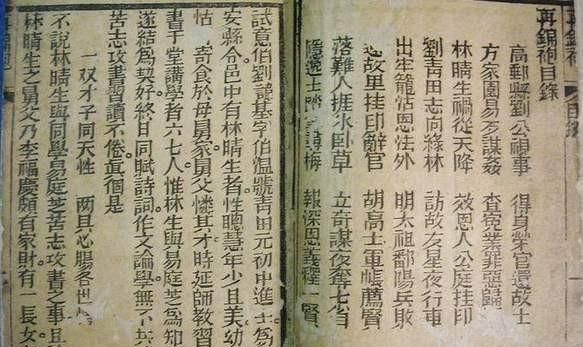 再錦袍目錄
目錄
再錦袍目錄
高郵縣劉公視事 得身榮官還故土
方家園易芝謀姦 查宿業罪惡歸
林晴生禍從天降 效恩人公庭挂印
劉青田志向綠林 訪故友星夜行車
出生籠怙恩性外 明太祖鄱陽兵敗
故里挂印辭官 胡高士軍帳薦賢
落難人捱氷卧草 立奇謀夜奪七省
隱逸士 梅 報深恩義釋一賢
試意伯劉諱基字伯溫號青田元初中進士爲
安縣令邑中有林晴生者性聰慧年少且美幼
怙 寄食於母舅家舅父憐其才時延師教習
書于堂講學者六七人惟林生與易庭芝爲知
遂結爲契好終日同賦詩詞作文論學無不共
苦志攻書習讀不倦眞個是
一双才子同天性 兩具心腸各世情
不說林晴生與同學易庭芝苦志攻書之事且
林晴生之舅父乃李福慶頗有家財有一長女
再錦袍